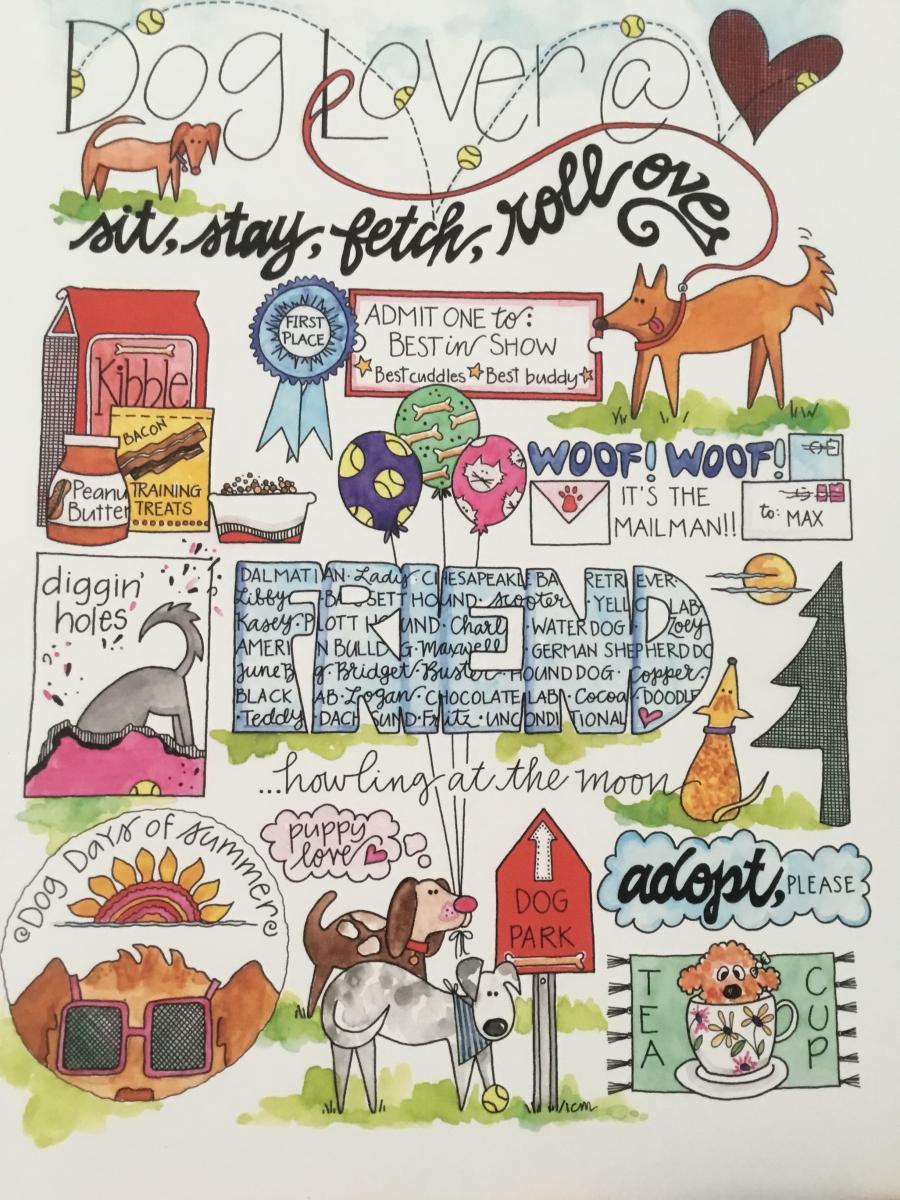 Dog Lover @
sit, stay, fetch, roll over
Kibble
BACON
TRAINING
TREATS
Peanut
Butter
FIRST
PLACE
ADMIT ONE to:
BEST in SHOW
Best cuddles Best buddy
WOOF! WOOF!
IT'S THE
MAILMAN!!
to: MAX
diggin'
holes
FRIEND
DALMATIAN · Lady · CHESAPEAKE BA RETRIEVER ·
Libby · BASSETT HOUND · Scooter · YELLO LAB ·
Kasey · PLOTT HOUND · Charl WATER DOG · Zoey
AMERI N BULLDOG · Maxwell · GERMAN SHEPHERD DO
JuneB g · Bridget · Buster · HOUND DOG · Copper ·
BLACK LAB · Logan · CHOCOLATE LAB · Cocoa · DOODLE
· Teddy · DACHSUND · Fritz · UNCONDITIONAL
...howling at the moon
Dog Days of Summer
puppy
love
DOG
PARK
adopt, PLEASE
TEA
CUP
rcm